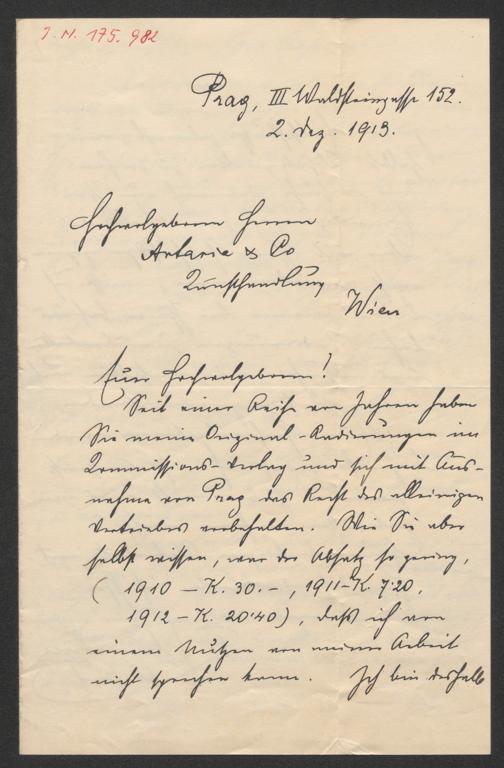 J. N. 175.982
Prag, III Waldsteingasse 152.
2. Dez. 1913.
Hochwolgeboren Herren
Artaria & Co
Kunsthandlung
Wien
Euer Hochwolgeboren!
Seit einer Reihe von Jahren haben
Sie meine Original-Radierungen im
Kommissions-Verlag und sich mit Aus-
nahme von Prag das Recht des alleinigen
Vertriebes vorbehalten. Wie Sie aber
selbst wissen, war der Absatz so gering,
(1910 – K. 30.–, 1911 – K. 7·20,
1912 – K. 20·40), daß ich von
einem Nutzen von meiner Arbeit
nicht sprechen kann. Ich bin deshalb